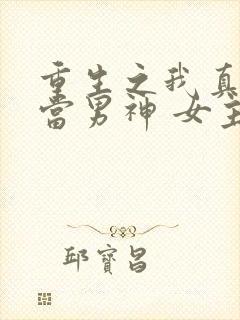 重生之我真
当男神 女主
邱宝昌